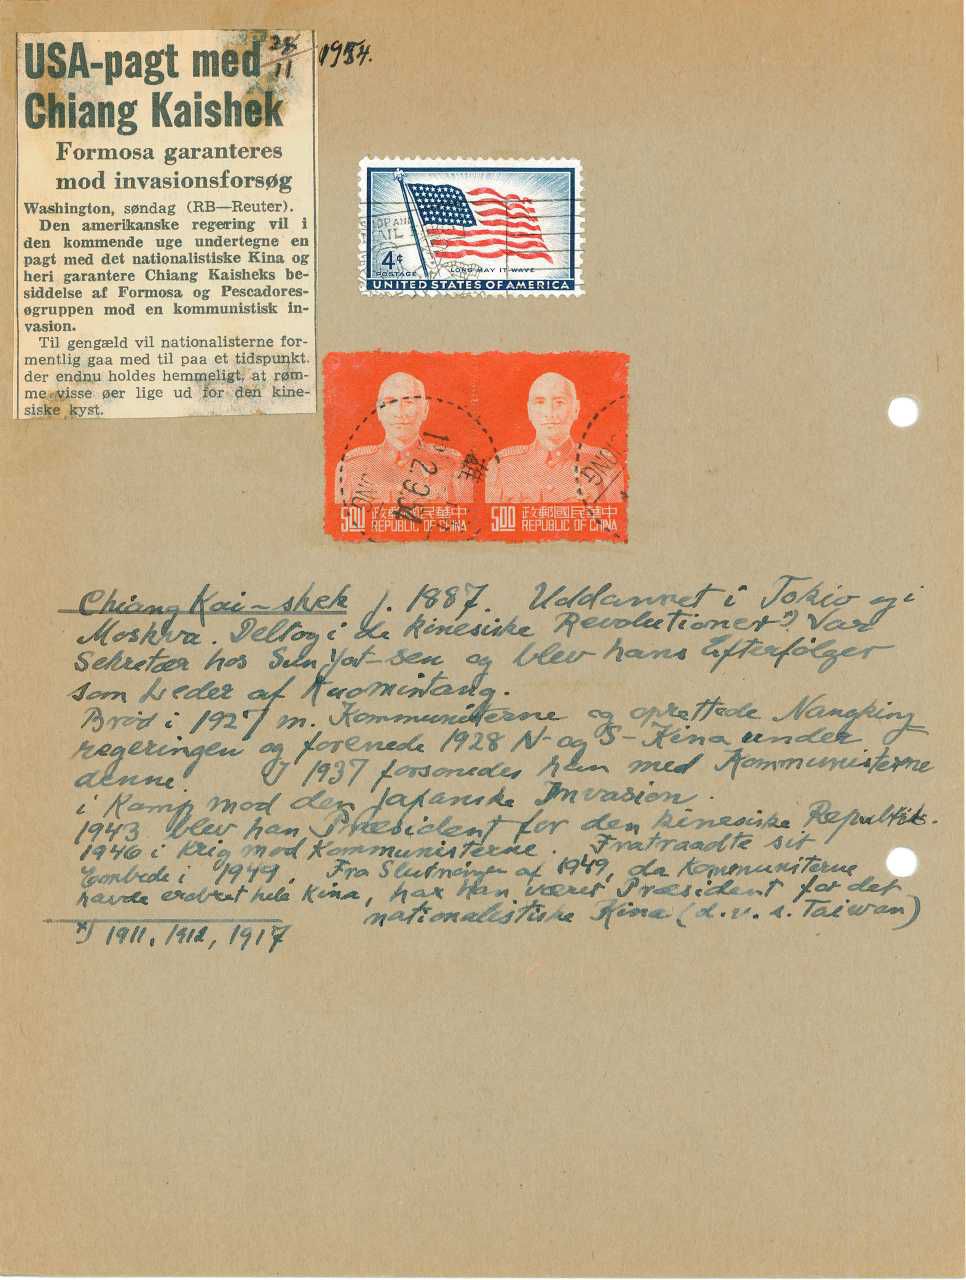 USA-pagt med
Chiang Kaishek
28/11 1954.
Formosa garanteres
mod invasionsforsøg
Washington, søndag (RB—Reuter).
Den amerikanske regering vil i
den kommende uge undertegne en
pagt med det nationalistiske Kina og
heri garantere Chiang Kaisheks be-
siddelse af Formosa og Pescadores-
øgruppen mod en kommunistisk in-
vasion.
Til gengæld vil nationalisterne for-
mentlig gaa med til paa et tidspunkt,
der endnu holdes hemmeligt, at røm-
me visse øer lige ud for den kine-
siske kyst.
4¢
POSTAGE
LONG MAY IT WAVE
UNITED STATES OF AMERICA
500 政郵國民華中
REPUBLIC OF CHINA
500 政郵國民華中
REPUBLIC OF CHINA
Chiang Kai-shek f. 1887. Uddannet i Tokio og i
Moskva. Deltog i de kinesiske Revolutioner *) Var
Sekretær hos Sun Yat-sen og blev hans Efterfølger
som Leder af Kuomintang.
Brød i 1927 m. Kommunisterne og oprettede Nanking
regeringen og forenede 1928 N- og S-Kina under
denne. I 1937 forsonedes han med Kommunisterne
i Kamp mod den japanske Invasion.
1943 blev han Præsident for den kinesiske Republik.
1946 i Krig mod Kommunisterne. Fratraadte sit
Embede i 1949. Fra Slutningen af 1949, da Kommunisterne
havde erobret hele Kina, har han været Præsident for det
nationalistiske Kina (d.v.s. Taiwan)
*) 1911, 1912, 1917